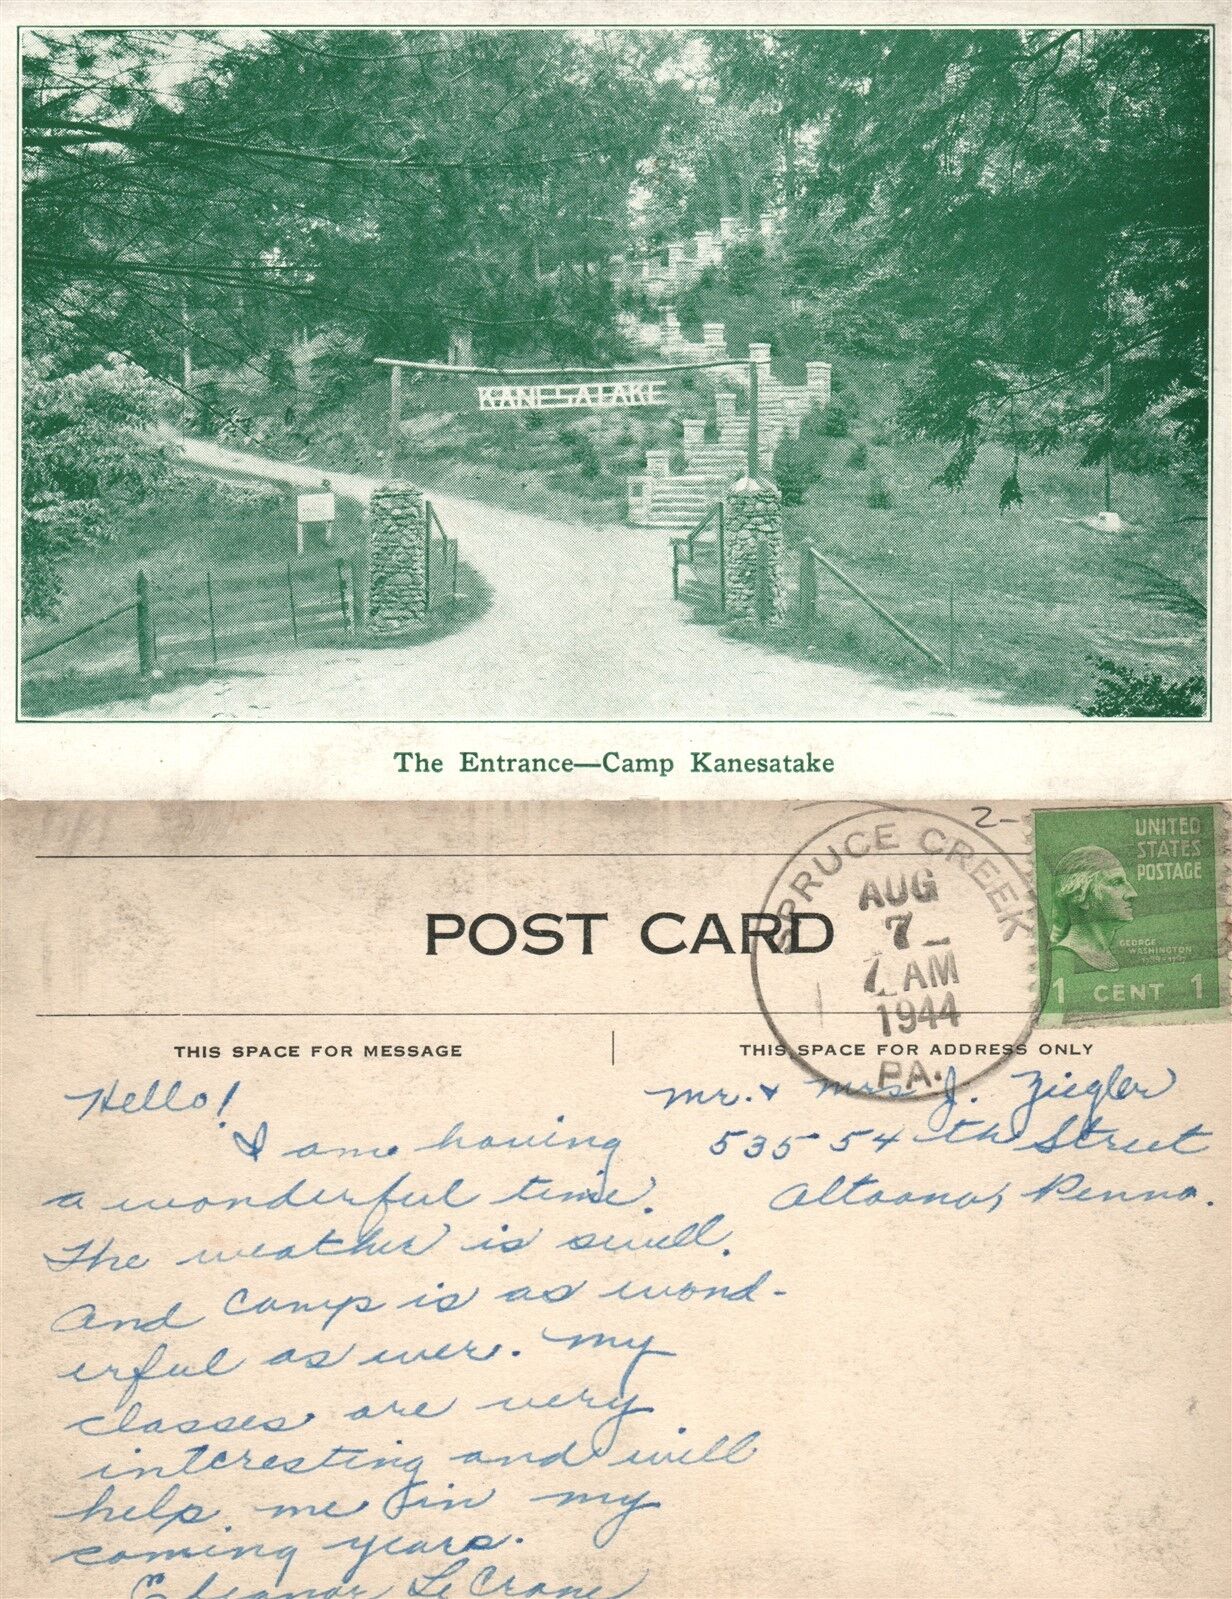 KANESATAKE
The Entrance—Camp Kanesatake
2-
SPRUCE CREEK
AUG
7
AM
1944
PA.
UNITED
STATES
POSTAGE
GEORGE
WASHINGTON
1 CENT 1
POST CARD
THIS SPACE FOR MESSAGE
THIS SPACE FOR ADDRESS ONLY
Hello!
I am having
a wonderful time.
The weather is swell.
And camp is as wond-
erful as ever. My
classes are very
interesting and will
help me in my
coming years.
Eleanor LeCrone
Mr. & Mrs J. Ziegler
535 54 th Street
Altoona, Penna.